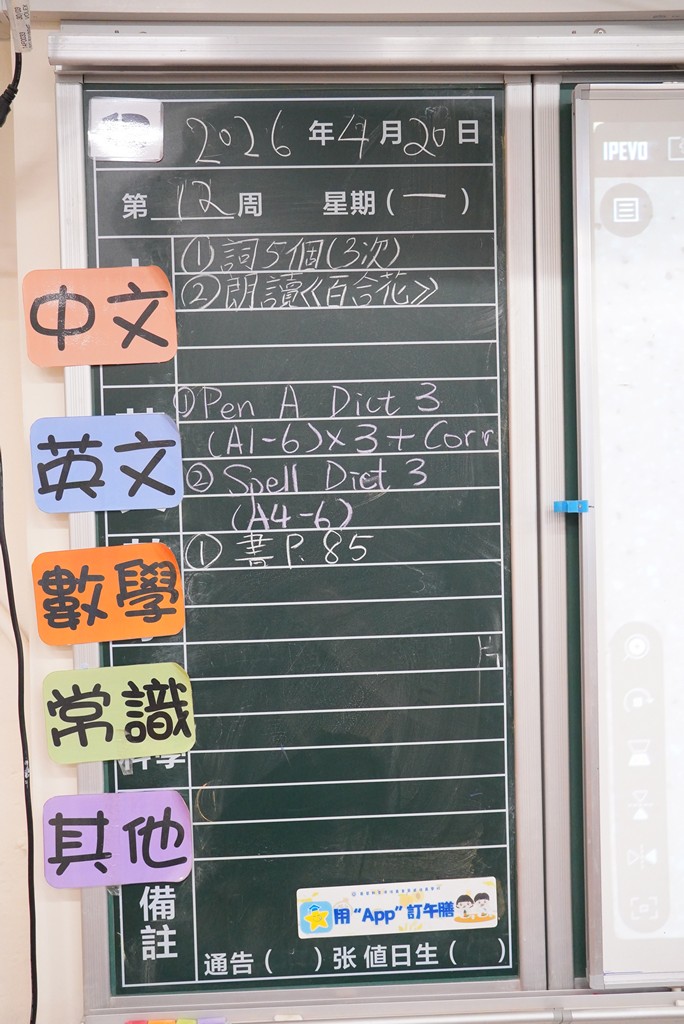 2026 年 4 月 20 日
第 12 周 星期 ( 一 )
① 詞5個(3次)
② 朗讀《百合花》
中文
① Pen A Dict 3
(A1-6)×3 + Corr
② Spell Dict 3
(A4-6)
英文
① 書 P. 85
數學
常識
科學
其他
備註
用“App”訂午膳
通告 ( ) 张 值日生 ( )
IPEVO